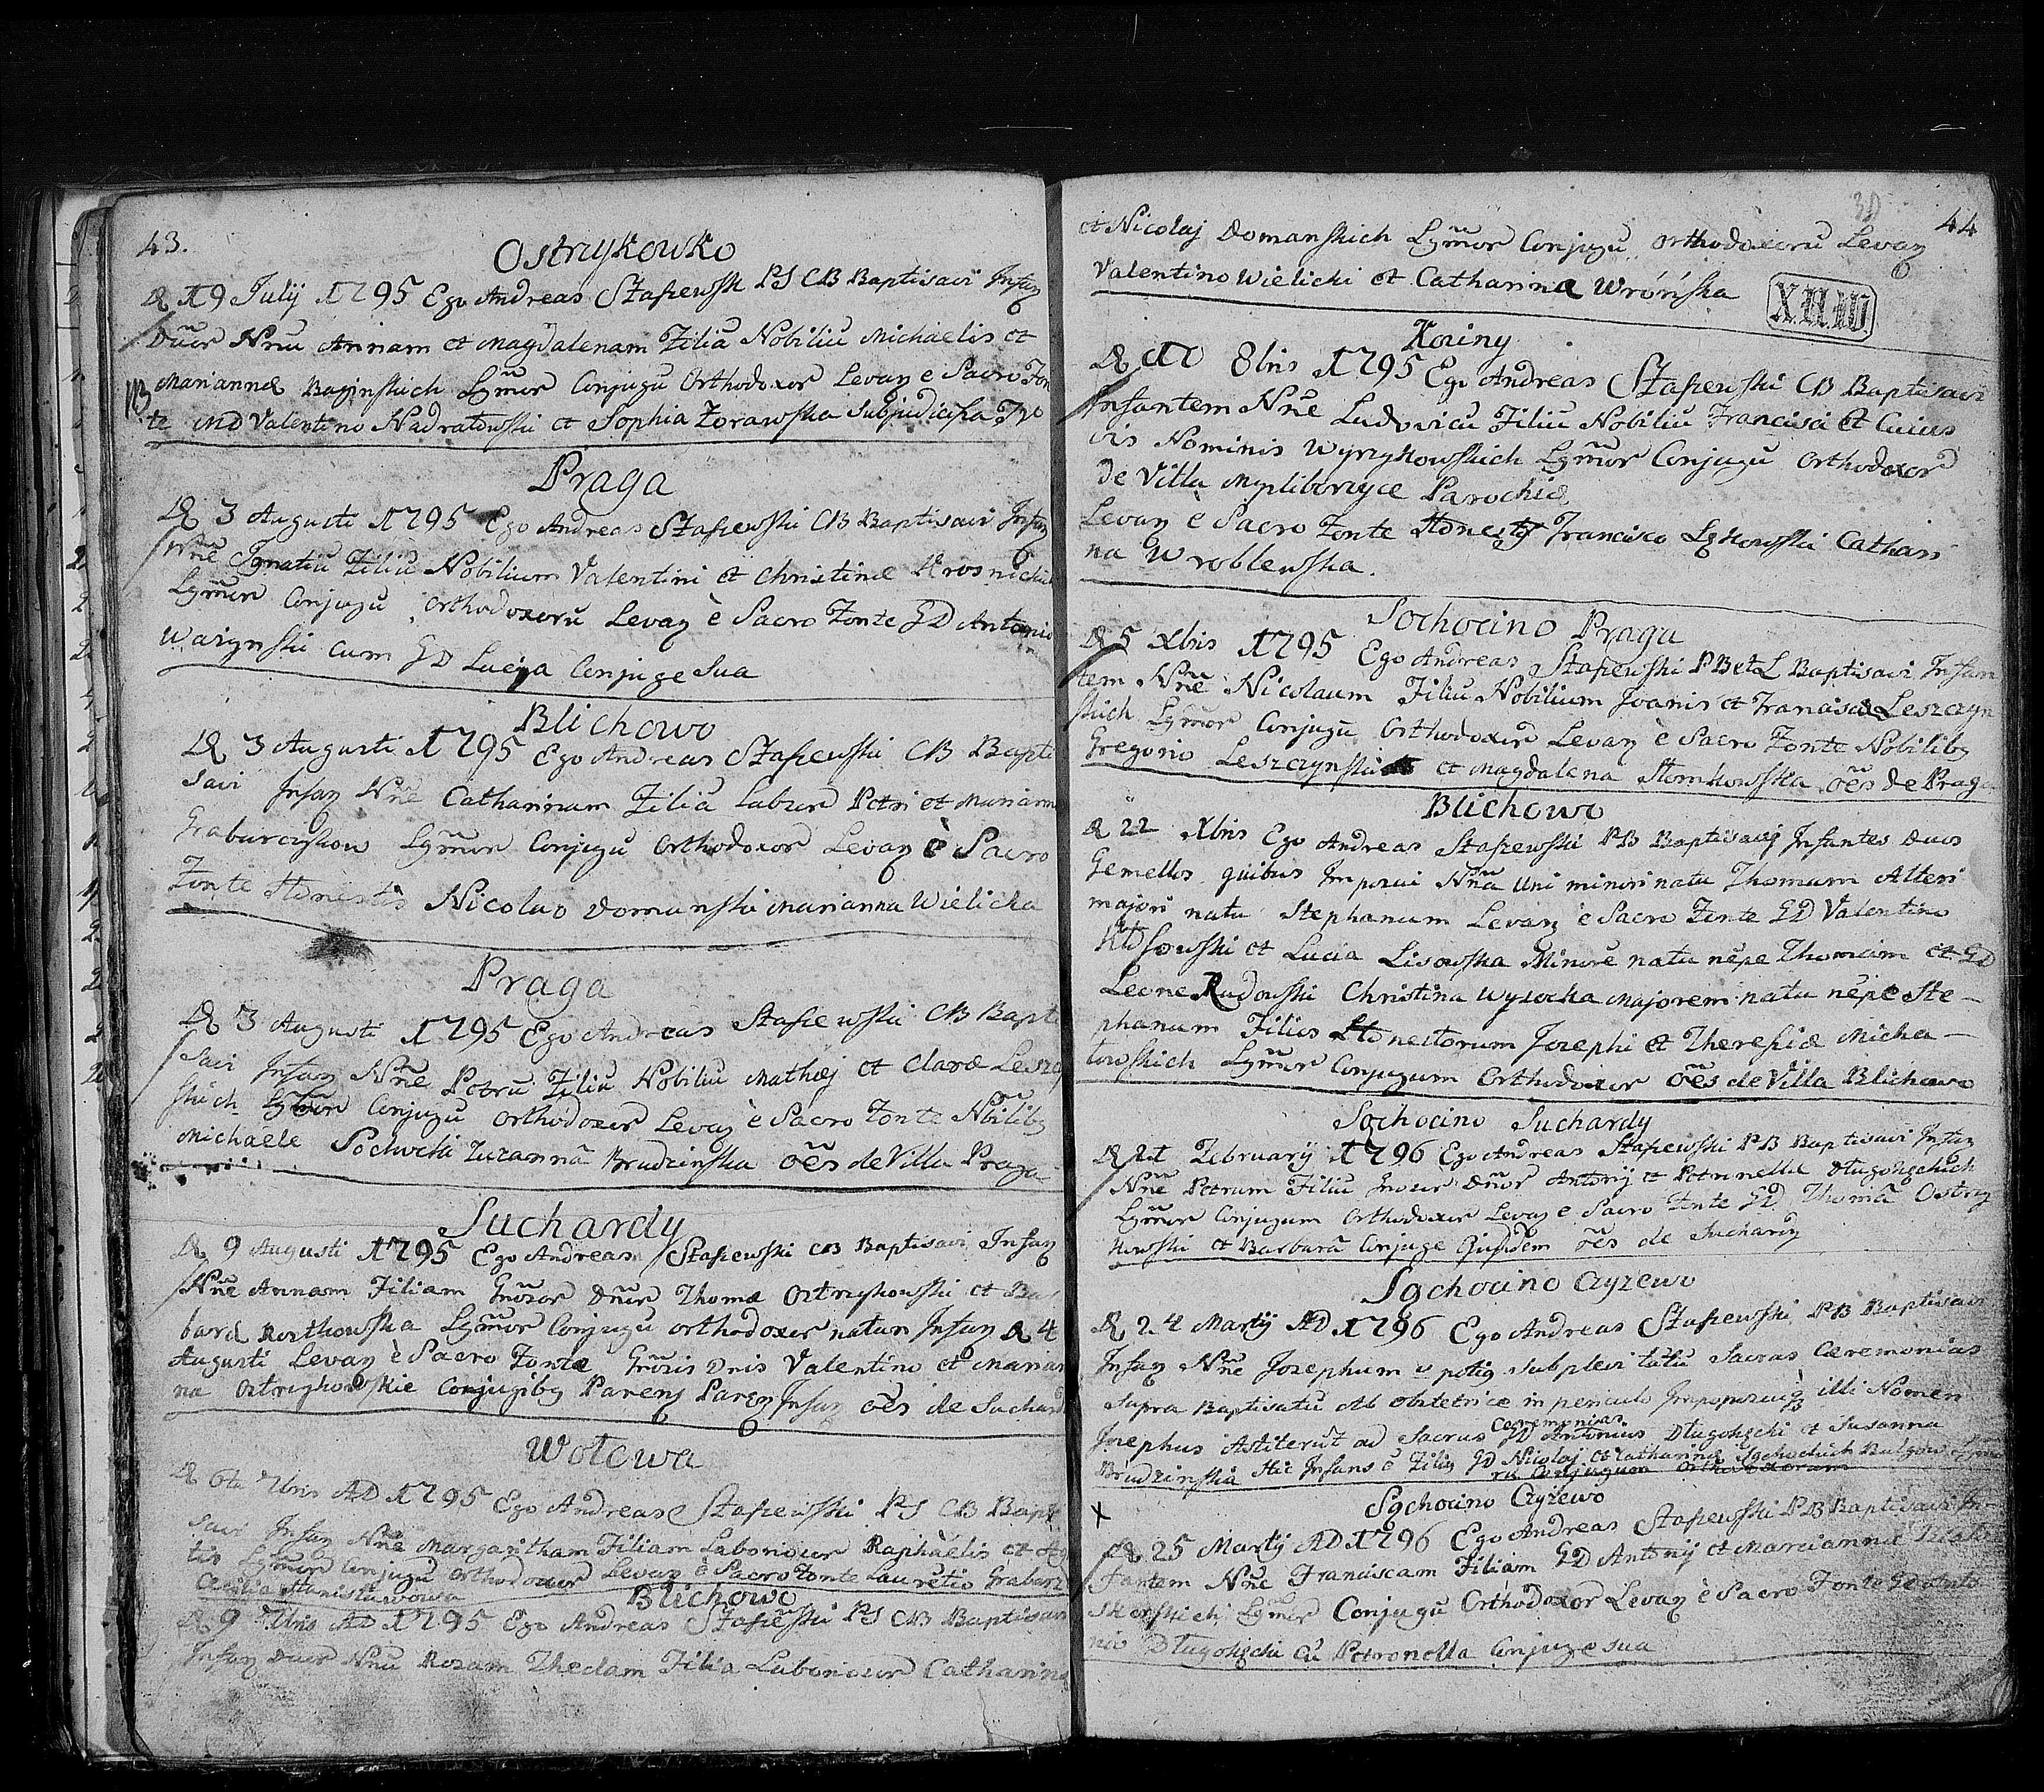 43.
Ostrzykowko
D 19 July 1795 Ego Andreas Stasiewski PS CB Baptisavi Infan
Duor Nnu Annam et Magdalenam Filia Nobiliu Michaelis et
Mariannæ Baginskich Lgmor Conjugu Orthodoxor Levan e Sacro Fon
te MD Valentino Nadratowski et Sophia Zorawska
Praga
D 3 Augusti 1795 Ego Andreas Stasiewski CB Baptisavi Infan
Nñe Ignatiu Filiu Nobilium Valentini et Christinæ Krosnickich
Lgmor Conjugu Orthodoxoru Levan è Sacro Fonte GD Antonio
Warynski cum GD Lucya Conjuge Sua
Blichowo
D 3 Augusti 1795 Ego Andreas Stasiewski CB Bapti
savi Infan Nñe Catharinam Filia Labror Petri et Mariann
Graburciskow Lgmor Conjugu Orthodoxor Levan è Sacro
Fonte Honestis Nicolao Domanski Marianna Wielicka
Praga
D 3 Augusti 1795 Ego Andreas Stasiewski CB Bapti
savi Infan Nñe Petru Filiu Nobiliu Mathæj et Claræ Leszcz
skich Lgmor Conjugu Orthodoxor Levan è Sacro Fonte Nbilibg
Michaele Sochocki Zuzanna Brudzinska oẽs de Villa Praga
Suchardy
D 9 Augusti 1795 Ego Andreas Stasiewski CB Baptisavi Infan
Nñe Annam Filiam Gnosor Dnor Thomæ Ostrzykowski et Bar
baræ Rostkowska Lgmor Conjugu orthodoxor natam Infan D 4
Augusti Levan è Sacro Fonte Gnosis Dnis Valentino et Marian
na Ostrzykowskie Conjugibg Infan oẽs de Suchard
Wolowa
D 6ta 7bris AD 1795 Ego Andreas Stasiewski PS CB Bapti
savi Infan Nñe Margaritham Filiam Laboriosor Raphaelis et
tis Lgmor Conjugu Orthodoxor Levan è Sacro Fonte Laurétio Grabarz
Cæcilia Stanisławowa
Blichowo
D 9 7bris AD 1795 Ego Andreas Stasiewski PS CB Baptisavi
Infan Duor Nnu Rosam Theclam Filia Laboriosor Catharinæ
30 44
et Nicolaj Domanskich Lgmor Conjugu Orthodoxoru Levan
Valentino Wielicki et Catharina Wrónska
Koziny
D 8bris 1795 Ego Andreas Stasiewski CB Baptisavi
Infantem Nñe Ludovicu Filiu Nobiliu Francisci et Cuius
vis Nominis Wyrzykowskich Lgmor Conjugu Orthodoxor
de Villa Mpliborzyce Parochiæ
Levan è Sacro Fonte Honestg Francisco Cathari
na Wroblewska.
Sochocino Praga
D 5 Xbris 1795 Ego Andreas Stasiewski PBetL Baptisavi Infan
tem Nñe Nicolaum Filiu Nobilium Joanis et Franciscæ Leszczyn
skich Lgmor Conjugu Orthodoxor Levan è Sacro Fonte Nobilibg
Gregorio Leszczynski et Magdalena Slomkowska oẽs de Praga
Blichowo
D 22 Xbris Ego Andreas Stasiewski PB Baptisavi Infantes duos
Gemellos quibus Imposui Nña Uni minori natu Thomam Alteri
majori natu Stephanum Levan è Sacro Fonte GD Valentino
Kłosowski et Lucia Lisowska Minore natu nẽpe Thomam et GD
Leone Rudowski Christina Wysocka Majorem natu nẽpe Ste-
phanum Filios Honestorum Josephi et Theresiæ Micha-
lowskich Lgmor Conjugum Orthodoxor oẽs de Villa Blichowo
Sochocino Suchardy
D 21 February 1796 Ego Andreas Stasiewski PB Baptisavi Infan
Nñe Petrum Filiu Gnosor Dnor Antonij et Petronellæ Długołęckich
Lgmor Conjugum Orthodoxor Levan e Sacro Fonte GD Thoma Ostrzy
kowski et Barbara Conjuge Ejusdem oẽs de Suchardy
Sochocino Czyzewo
D 24 Martij AD 1796 Ego Andreas Stasiewski PB Baptisavi
Infan Nñe Josephum v potig Suplevi tãtu Sacras Cæremonias
Supra Baptisatu Ab Obstetrice in periculo illi Nomen
Josephus Astiterũt ad Sacras Cæremonias GD Antonius Długołęcki et Susanna
Brudzinska Hic Infans ẽ Filig GD Nicolaj et Catharinæ Sochockich
ru Conjugum Orthodoxorum
Sochocino Czyzewo
X
D 25 Martij AD 1796 Ego Andreas Stasiewski PB Baptisavi In-
fantem Nñe Franciscam Filiam GD Antonij et Mariannæ
skich Lgmor Conjugu Orthodoxor Levan è Sacro Fonte GD Anto
nio Długołęcki cũ Petronella Conjuge sua